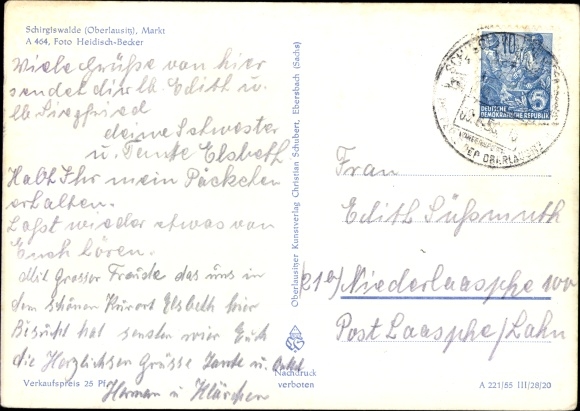 Schirgiswalde (Oberlausitz), Markt
A 464, Foto Heidisch-Becker
Viele Grüße von hier
sendet dir lb. Edith u.
lb. Siegfried
deine Schwester
u. Tante Elsbeth
Habt Ihr mein Päckchen
erhalten.
Laßt wieder etwas von
Euch hören.
Mit grosser Freude das uns in
dem schönen Kurort Elsbeth hier
Besucht hat senden wir Euch
die Herzlichsten Grüsse Tante u. Onkel
Herman u Klärchen
Verkaufspreis 25 Pf.
Oberlausitzer Kunstverlag Christian Schubert, Ebersbach (Sachs)
Nachdruck
verboten
DEUTSCHE
DEMOKRATISCHE REPUBLIK
5
DER OBERLAUSITZ
Frau
Edith Süßmuth
21b) Niederlaasphe 100
Post Laasphe/Lahn
A 221/55 III/28/20